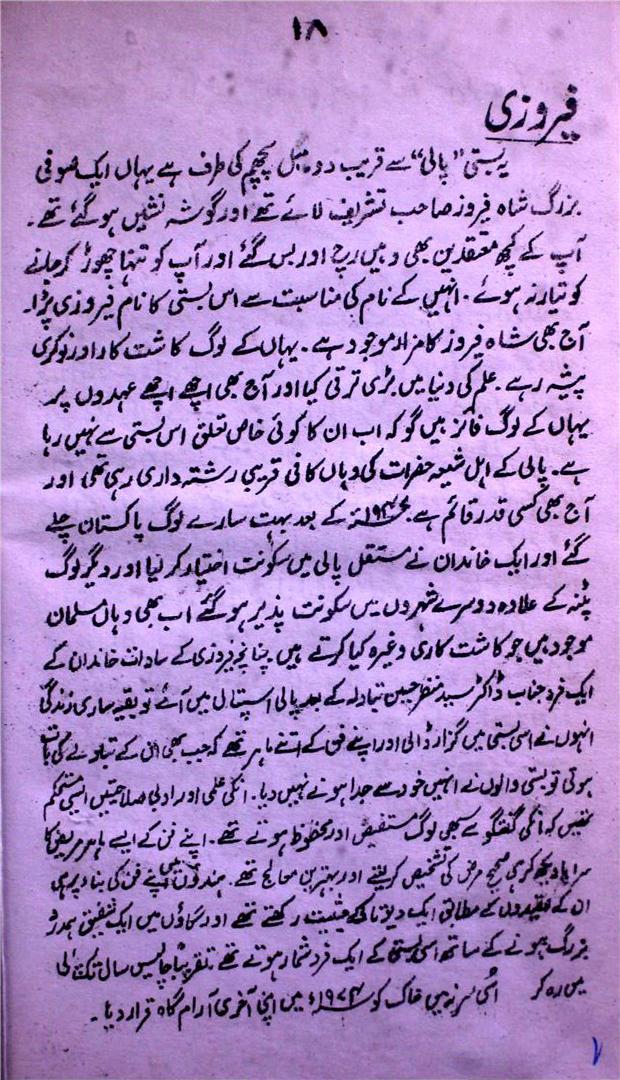 ۱۸
فیروزی
یہ بستی "پالی" سے قریب دو میل پچھم کی طرف ہے یہاں ایک صوفی
بزرگ شاہ فیروز صاحب تشریف لائے تھے اور گوشہ نشیں ہو گئے تھے۔
آپ کے کچھ معتقدین بھی وہیں رچ اور بس گئے اور آپ کو تنہا چھوڑ کر جانے
کو تیار نہ ہوئے۔ انہیں کے نام کی مناسبت سے اس بستی کا نام فیروزی پڑا۔
آج بھی شاہ فیروز کا مزار موجود ہے۔ یہاں کے لوگ کاشت کار اور نوکری
پیشہ رہے۔ علم کی دنیا میں بڑی ترقی کیا اور آج بھی اچھے اچھے عہدوں پر
یہاں کے لوگ فائز ہیں گو کہ اب ان کا کوئی خاص تعلق اس بستی سے نہیں رہا
ہے۔ پالی کے اہل شیعہ حضرات کی وہاں کافی قریبی رشتہ داری رہی تھی اور
آج بھی کسی قدر قائم ہے۔ ۱۹۴۷ء کے بعد بہت سارے لوگ پاکستان چلے
گئے اور ایک خاندان نے مستقل پالی میں سکونت اختیار کر لیا اور دیگر لوگ
پٹنہ کے علاوہ دوسرے شہروں میں سکونت پذیر ہو گئے اب بھی وہاں مسلمان
موجود ہیں جو کاشت کاری وغیرہ کیا کرتے ہیں چنانچہ فیروزی کے سادات خاندان کے
ایک فرد جناب ڈاکٹر سید مظفر حسین تبادلہ کے بعد پالی اسپتال میں آئے تو بقیہ ساری زندگی
انہوں نے اسی بستی میں گزار ڈالی اور اپنے فن کے اتنے ماہر تھے کہ جب بھی ان کے تبادلے کی بات
ہوتی تو بستی والوں نے انہیں خود سے جدا ہونے نہیں دیا۔ انکی علمی اور ادبی صلاحیتیں ایسی مستحکم
تھیں کہ انکی گفتگو سے سبھی لوگ مستفیض اور محظوظ ہوتے تھے۔ اپنے فن کے ایسے ماہر مریض کا
سراپا دیکھ کر ہی صحیح مرض کی تشخیص کر لیتے اور بہترین معالج تھے۔ ہندوں میں اپنے فن کی بناء پر ہی
ان کے عقیدوں کے مطابق ایک دیوتا کی حیثیت رکھتے تھے اور گاؤں میں ایک شفیق ہمدرد
بزرگ ہونے کے ساتھ اسی بستی کے ایک فرد شمار ہوتے تھے۔ تقریباً چالیس سال تک پالی
میں رہ کر اسی سرزمین خاک کو ۱۹۷۴ء میں اپنی آخری آرام گاہ قرار دیا۔